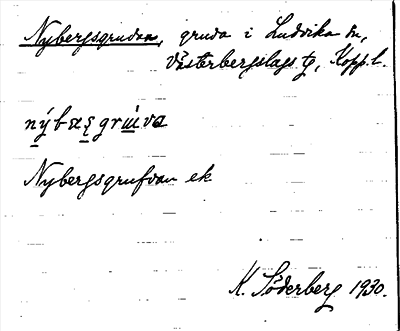 Nybergsgruvan, gruva i Ludvika sn,
Västerbergslags tg, Kopp. l.
Nybergsgrufvan ek
K. Söderberg 1930.